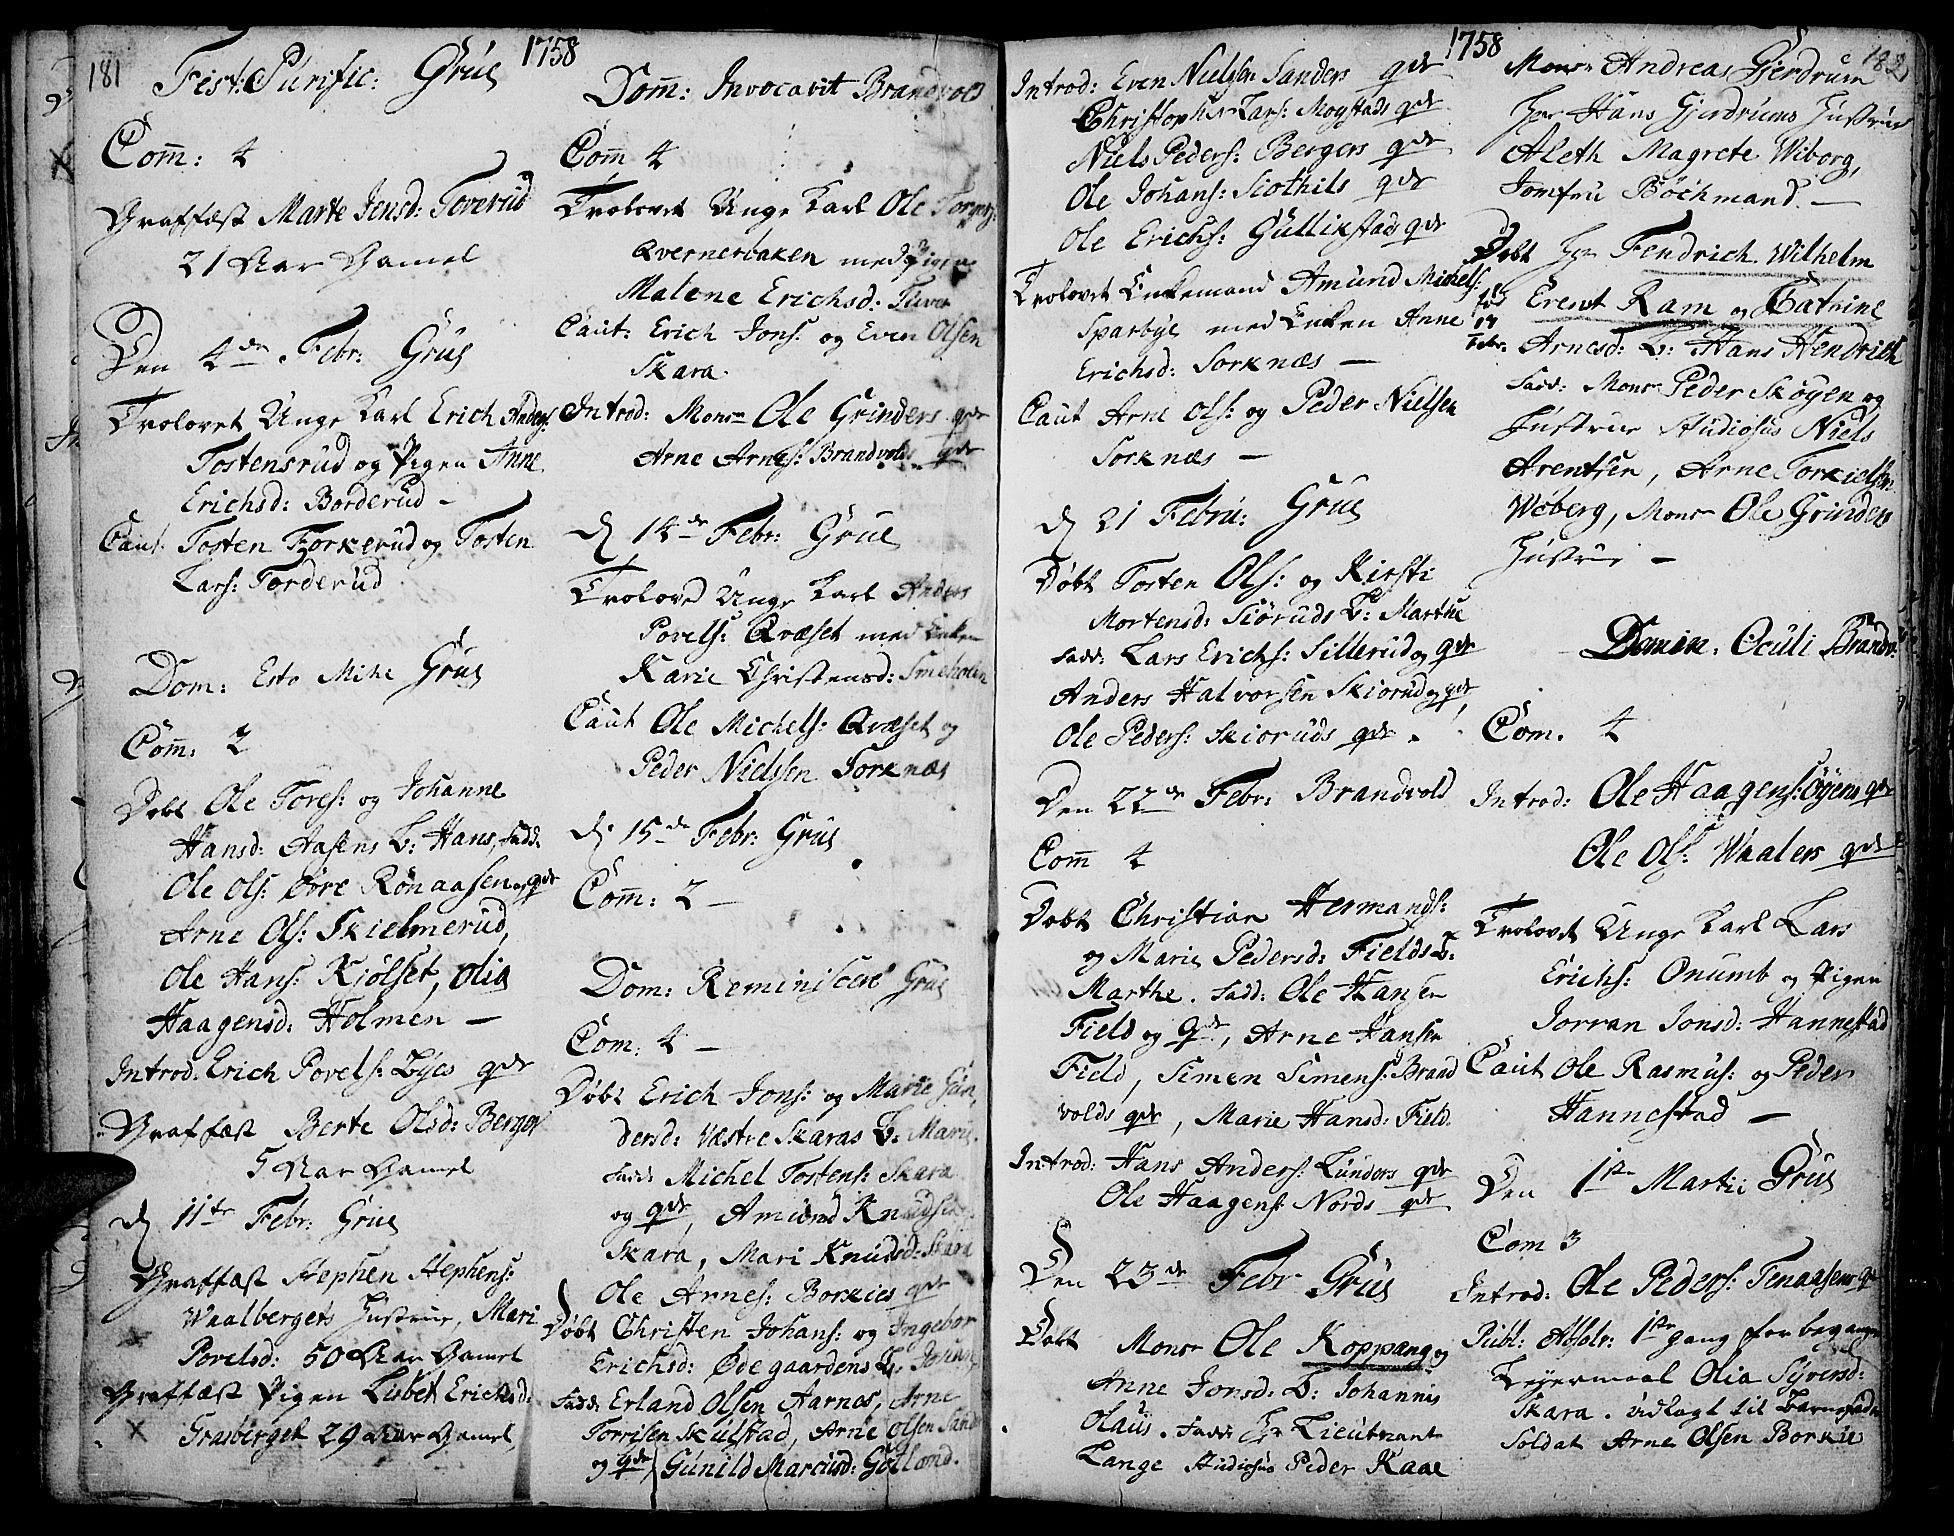 181
1758
Fest: Purific: Grue
Com̄: 4
Graffæst Marte Jensd: Toverud
21 Aar Gamel
Den 4de Febr: Grue
Trolovet Unge Karl Erich Anders:
Tostensrud og Pigen Anne
Erichsd: Borderud –
Caut. Tosten Torkerud og Tosten
Lars: Torderud
Dom: Esto Mihi Grue
Com̄: 2
Døbt Ole Tores: og Johanne
Hansd: Aasens B: Hans, Fadd:
Ole Ols: Øvre Rönaasen og qde
Arne Ols: Skielmerud,
Ole Hans: Kjølset, Olia
Haagensd: Holmen –
Introd. Erich Povels: Byes qde
Graffæst Berte Olsd: Berger
5 Aar Gamel
d 11te Febr: Grue
Graffæst Stephen Stephens:
Waalbergets Hustrue, Mari
Povelsd: 50 Aar Gamel
Graffæst Pigen Lisbet Erichsd:
Frasberget 29 Aar Gamel,
Dom̄: Invocavit Brandvold
Com̄ 4
Trolovet Unge Karl Ole Torgers:
Qvernerbaken med Pigen
Malene Erichsd: Tuven
Caut: Erich Jons: og Even Olsen
Skara.
Introd: Monsr Ole Grinders qde
Arne Arnes: Brandvolds qde
d 14de Febr: Grue
Troloved Unge Karl Anders
Povels: Qvæset med Enken
Karie Christensd: Smeholen
Caut Ole Michels: Qvæset og
Peder Nielssen Sorknæs
d. 15de Febr: Grue
Com̄: 2 –
Dom: Reminiscere Grue
Com: 4 –
Døbt Erich Jons: og Marie Gun,
dersd: Væstre Skaras B: Marie.
Fadd: Michel Tostens: Skara
og qde, Amund Knudsen
Skara, Mari Knudsd: Skara
Ole Arnes: Borkies qde
Døbt Christen Johans: og Ingebor
Erichsd: Ødegaardens B: Johan,
Fadd: Erland Olsen Aarnæs, Arne
Torrisen Skulstad, Arne Olsen Sand
og qde, Gunild Marcusd: Gotland.
1758
182
Introd: Even Nielssen Sanders qde
Christopher Lars: Mogstads qde
Niels Peders: Bergers qde
Ole Johans: Slothils qde
Ole Erichs: Gullikstads qde
Trolovet Enkemand Amund Michels:
Sparbye med Enken Anne
Erichsd: Sorknæs –
Caut Arne Ols: og Peder Nielsen
Sorknæs –
d 21 Febru: Grue
Døbt Tosten Ols: og Kirsti
Mortensd: Siöruds B: Marthe
Fadd: Lars Erichs: Sillerud og qde
Anders Halvorsen Skiorud og qde,
Ole Peders: Skioruds qde.
Den 22de Febr: Brandvold
Com̄ 4
Døbt Christian Hermands:
og Marie Pedersd: Fields B:
Marthe. Fadd: Ole Hansen
Field og qde, Arne Hansen
Field, Simen Simens: Brand
volds qde, Marie Hansd: Field.
Introd: Hans Anders: Lunders qde
Ole Haagens: Nords qde
Den 23de Febr Grue
Døbt Monsr Ole Koppang og
Anne Jonsd: B: Johannis
Olaus. Fadd: Hr Lieutnant
Lange Studiosus Peder Kaae
Monsr Andreas Gjerdrum
Hr Hans Gjerdrums Hustrue
Aleth Magrete Wiborg,
Jomfru Bochmand. –
Døbt Hr Fendrich Wilhelm
Ernst Ram og Catrine
fød
17
Febr.
Arnesd: B: Hans Hendrich
Fadd: Monsr Peder Skøyen og
Hustrue Studiosus Niels
Arentsen, Arne Torkielsen
Woberg, Monsr Ole Grinders
Hustrue –
Domin. Oculi Brandv:
Com. 4
Introd: Ole Haagens: Øyens qde
Ole Ols: Waalers qde
Trolovet Unge Karl Lars
Erichs: Onumb og Pigen
Jorran Jonsd: Hannestad
Caut Ole Rasmus: og Peder
Hannestad –
Den 1ste Martii Grue
Com 3
Introd: Ole Peders: Tenaasens qde
Publ: Absolv: 1ste gang for begangen
Leyermaal Olia Syversd:
Skara. Udlagt til Barnefader
Soldat Arne Olsen Borkie